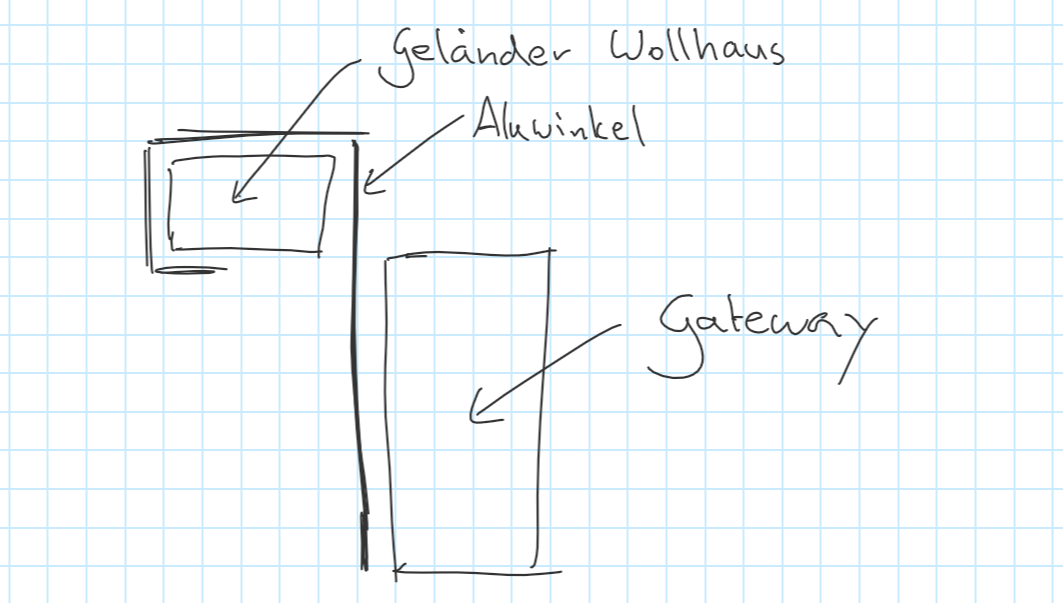 Geländer Wollhaus
Aluwinkel
Gateway